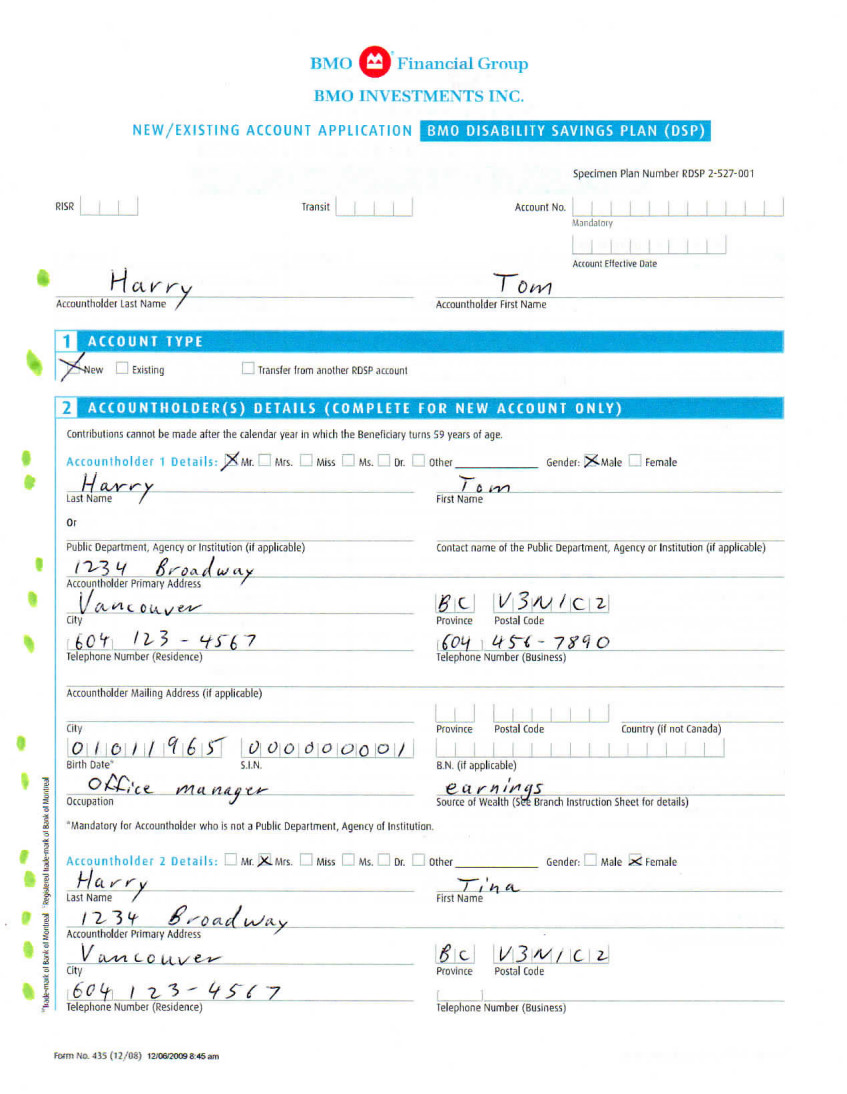 BMO Financial Group
BMO INVESTMENTS INC.
NEW/EXISTING ACCOUNT APPLICATION BMO DISABILITY SAVINGS PLAN (DSP)
Specimen Plan Number RDSP 2-527-001
RISR Transit Account No.
Mandatory
Account Effective Date
Harry Tom
Accountholder Last Name Accountholder First Name
1 ACCOUNT TYPE
New Existing Transfer from another RDSP account
2 ACCOUNTHOLDER(S) DETAILS (COMPLETE FOR NEW ACCOUNT ONLY)
Contributions cannot be made after the calendar year in which the Beneficiary turns 59 years of age.
Accountholder 1 Details: Mr. Mrs. Miss Ms. Dr. Other Gender: Male Female
Harry Tom
Last Name First Name
Or
Public Department, Agency or Institution (if applicable) Contact name of the Public Department, Agency or Institution (if applicable)
1234 Broadway
Accountholder Primary Address
Vancouver BC V3N1C2
City Province Postal Code
604 123-4567 604 456-7890
Telephone Number (Residence) Telephone Number (Business)
Accountholder Mailing Address (if applicable)
City Province Postal Code Country (if not Canada)
01011965 000000001
Birth Date* S.I.N. B.N. (if applicable)
Office manager earnings
Occupation Source of Wealth (See Branch Instruction Sheet for details)
*Mandatory for Accountholder who is not a Public Department, Agency of Institution.
Accountholder 2 Details: Mr. Mrs. Miss Ms. Dr. Other Gender: Male Female
Harry Tina
Last Name First Name
1234 Broadway
Accountholder Primary Address
Vancouver BC V3N1C2
City Province Postal Code
604 123-4567
Telephone Number (Residence) Telephone Number (Business)
Trade-mark of Bank of Montreal Registered trade-mark of Bank of Montreal
Form No. 435 (12/08) 12/06/2009 8:45 am